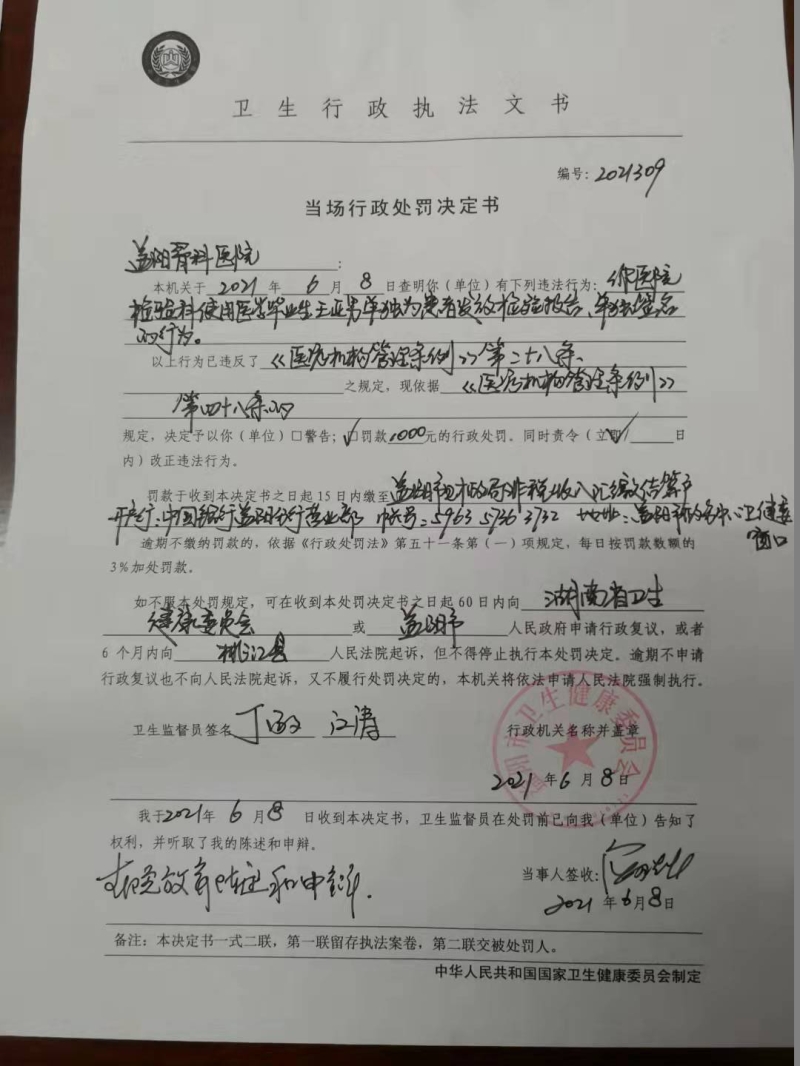 卫生行政执法文书
编号：2021309
当场行政处罚决定书
益阳骨科医院：
本机关于2021年6月8日查明你（单位）有下列违法行为：你医院
检验科使用医学毕业生王亚男单独为患者发放检验报告、单独签名
的行为。
以上行为已违反了《医疗机构管理条例》第二十八条、
之规定，现依据《医疗机构管理条例》
第四十八条的
规定，决定予以你（单位）□警告；☑罚款1000元的行政处罚。同时责令（立即/ 日
内）改正违法行为。
罚款于收到本决定书之日起15日内缴至益阳市财政局非税收入汇缴结算户
开户行：中国银行益阳分行营业部 帐号：5963 5736 3732 地址：益阳市政务中心卫健委
窗口
逾期不缴纳罚款的，依据《行政处罚法》第五十一条第（一）项规定，每日按罚款数额的
3%加处罚款。
如不服本处罚规定，可在收到本处罚决定书之日起60日内向湖南省卫生
健康委员会或益阳市人民政府申请行政复议，或者
6个月内向桃江县人民法院起诉，但不得停止执行本处罚决定。逾期不申请
行政复议也不向人民法院起诉，又不履行处罚决定的，本机关将依法申请人民法院强制执行。
卫生监督员签名 丁 江涛 行政机关名称并盖章
益阳市卫生健康委员会
2021年6月8日
我于2021年6月8日收到本决定书，卫生监督员在处罚前已向我（单位）告知了
权利，并听取了我的陈述和申辩。
放弃陈述和申辩.
当事人签收：
2021年6月8日
备注：本决定书一式二联，第一联留存执法案卷，第二联交被处罚人。
中华人民共和国国家卫生健康委员会制定